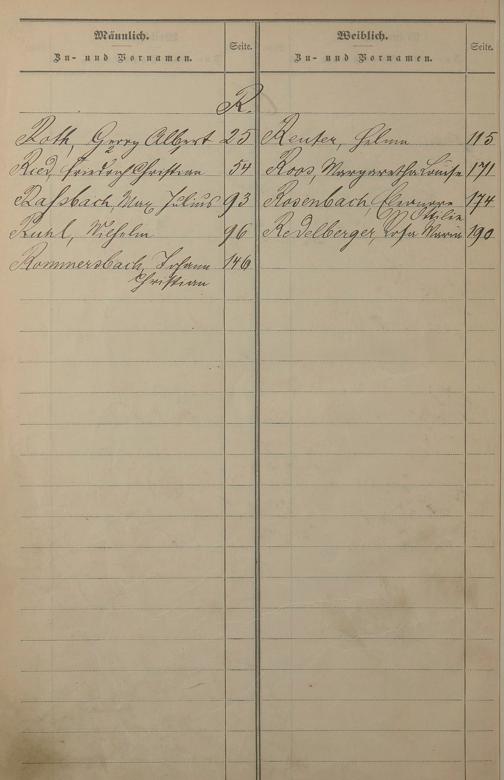 Männlich.
Zu- und Vornamen.
Seite.
Weiblich.
Zu- und Vornamen.
Seite.
R.
Roth, Georg Albert 25
Ried, Friedrich Christian 54
Raßbach, Max Julius 93
Ruhl, Wilhelm 96
Rommersbach, Johann 146
Christian
Reuter, Helma 115
Roos, Margaretha Louise 171
Rosenbach, Eleonore 174
Ottilie
Redelberger, Rosa Maria 190